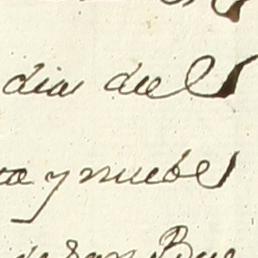 dia del
ta y nuebe
de San Bue